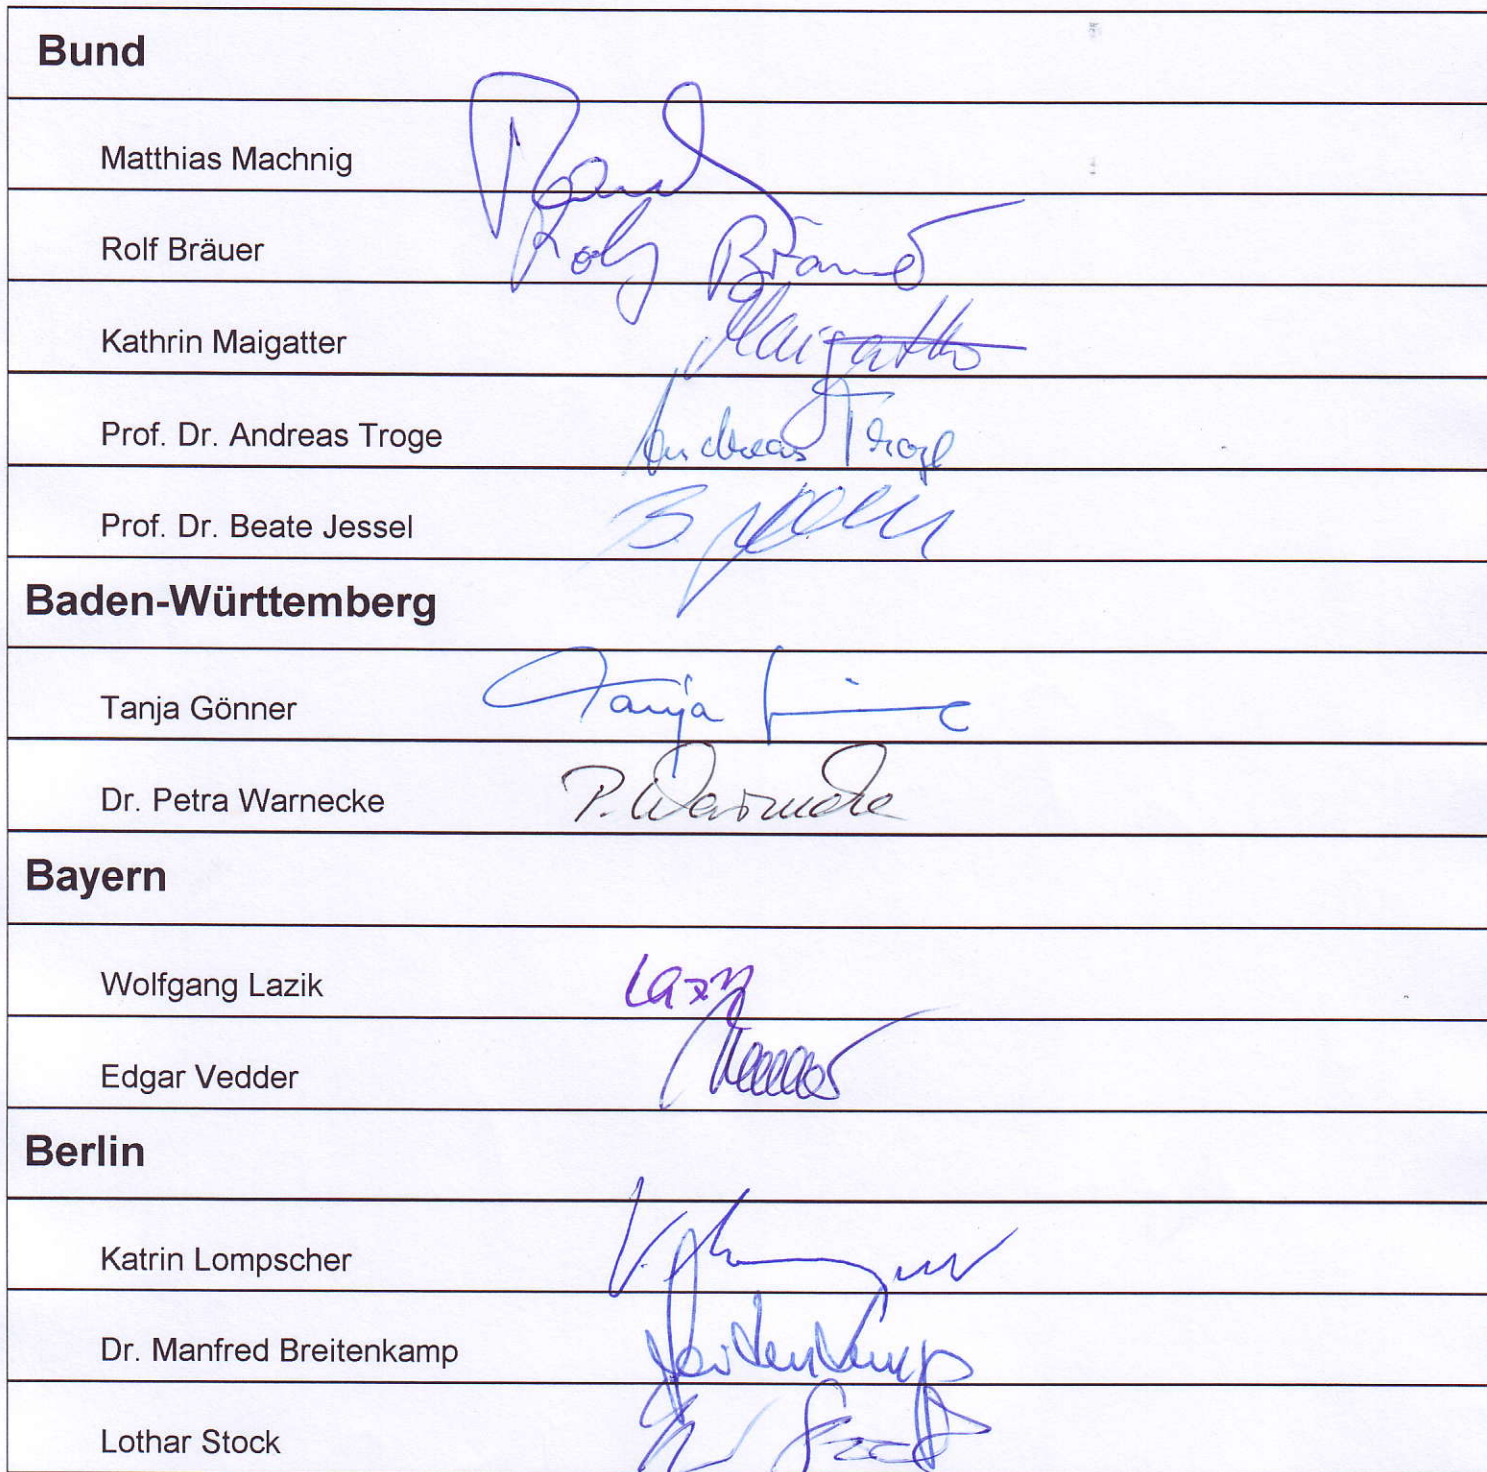 Bund
Matthias Machnig
Rolf Bräuer Rolf Bräuer
Kathrin Maigatter Maigatter
Prof. Dr. Andreas Troge Andreas Troge
Prof. Dr. Beate Jessel B. Jessel
Baden-Württemberg
Tanja Gönner Tanja
Dr. Petra Warnecke P. Warnecke
Bayern
Wolfgang Lazik
Edgar Vedder
Berlin
Katrin Lompscher
Dr. Manfred Breitenkamp Breitenkamp
Lothar Stock Stock